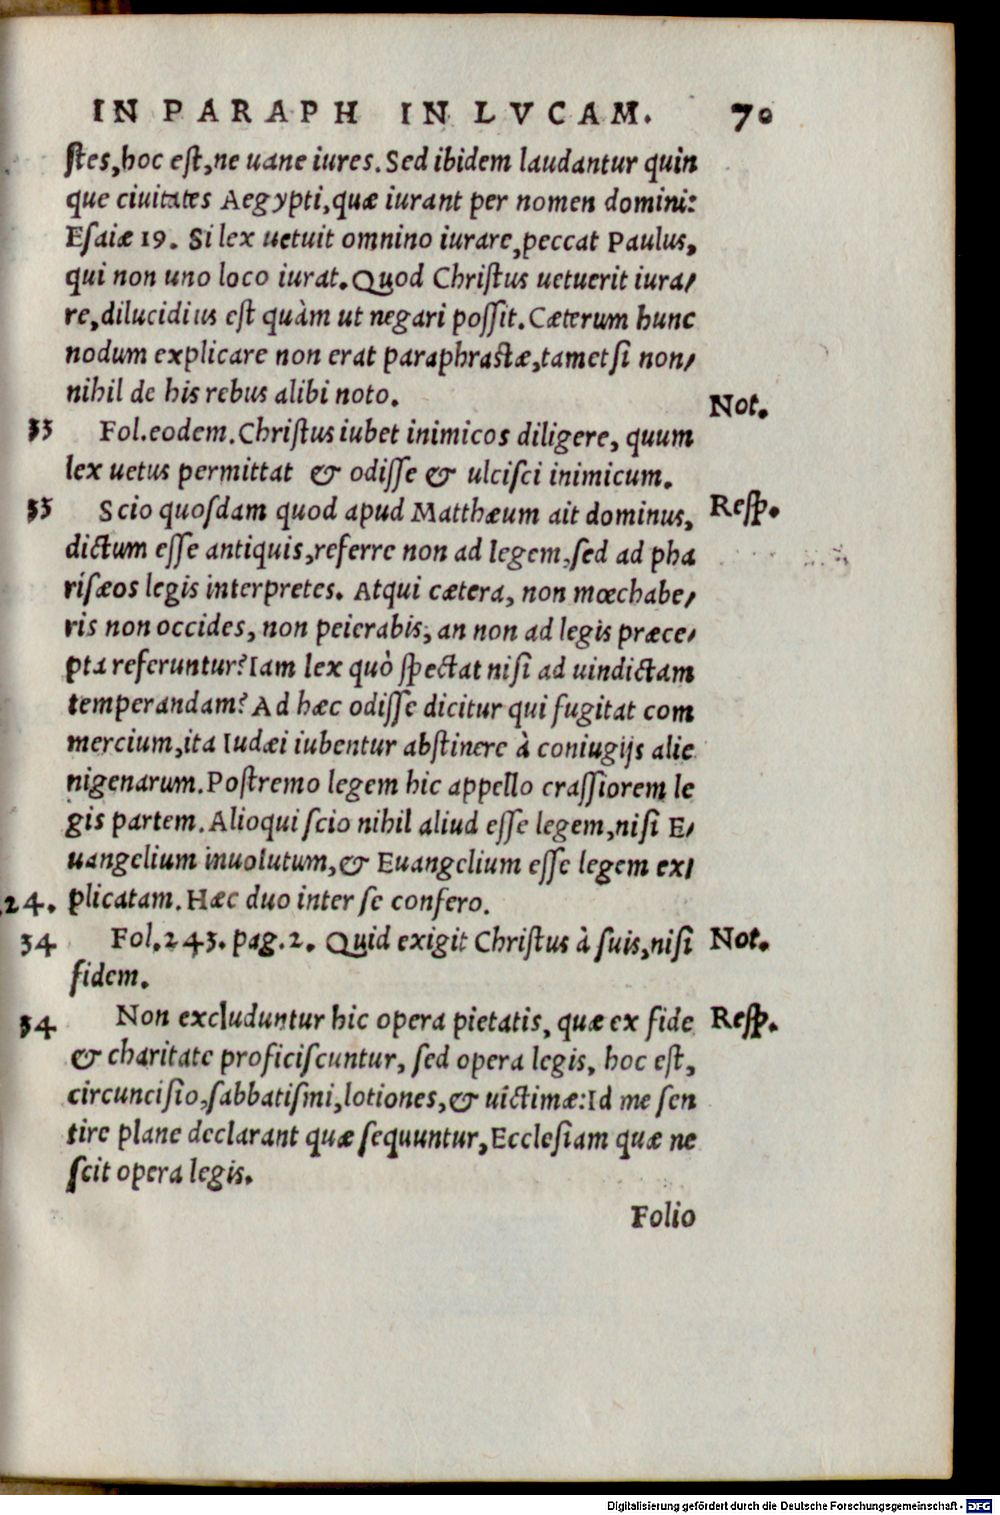 IN PARAPH IN LVCAM. 70
ſtes, hoc eſt, ne uane iures. Sed ibidem laudantur quin
que ciuitates Aegypti, quæ iurant per nomen domini:
Eſaiæ 19. Si lex uetuit omnino iurare, peccat Paulus,
qui non uno loco iurat. Quod Chriſtus uetuerit iura/
re, dilucidius eſt quàm ut negari poſſit. Cæterum hunc
nodum explicare non erat paraphraſtæ, tametſi non/
nihil de his rebus alibi noto.
33 Fol. eodem. Chriſtus iubet inimicos diligere, quum Not.
lex uetus permittat & odiſſe & ulciſci inimicum.
33 Scio quoſdam quod apud Matthæum ait dominus, Reſp.
dictum eſſe antiquis, referre non ad legem, ſed ad pha
riſæos legis interpretes. Atqui cætera, non mœchabe/
ris non occides, non peierabis, an non ad legis præce/
pta referuntur? Iam lex quò ſpectat niſi ad uindictam
temperandam? Ad hæc odiſſe dicitur qui fugitat com
mercium, ita Iudæi iubentur abſtinere à coniugijs alie
nigenarum. Poſtremo legem hic appello craſſiorem le
gis partem. Alioqui ſcio nihil aliud eſſe legem, niſi E/
uangelium inuolutum, & Euangelium eſſe legem ex/
24. plicatam. Hæc duo inter ſe confero.
34 Fol. 243. pag. 2. Quid exigit Chriſtus à ſuis, niſi Not.
fidem.
34 Non excluduntur hic opera pietatis, quæ ex fide Reſp.
& charitate proficiſcuntur, ſed opera legis, hoc eſt,
circunciſio, ſabbatiſmi, lotiones, & uictimæ: Id me ſen
tire plane declarant quæ ſequuntur, Eccleſiam quæ ne
ſcit opera legis.
Folio
Digitalisierung gefördert durch die Deutsche Forschungsgemeinschaft - DFG